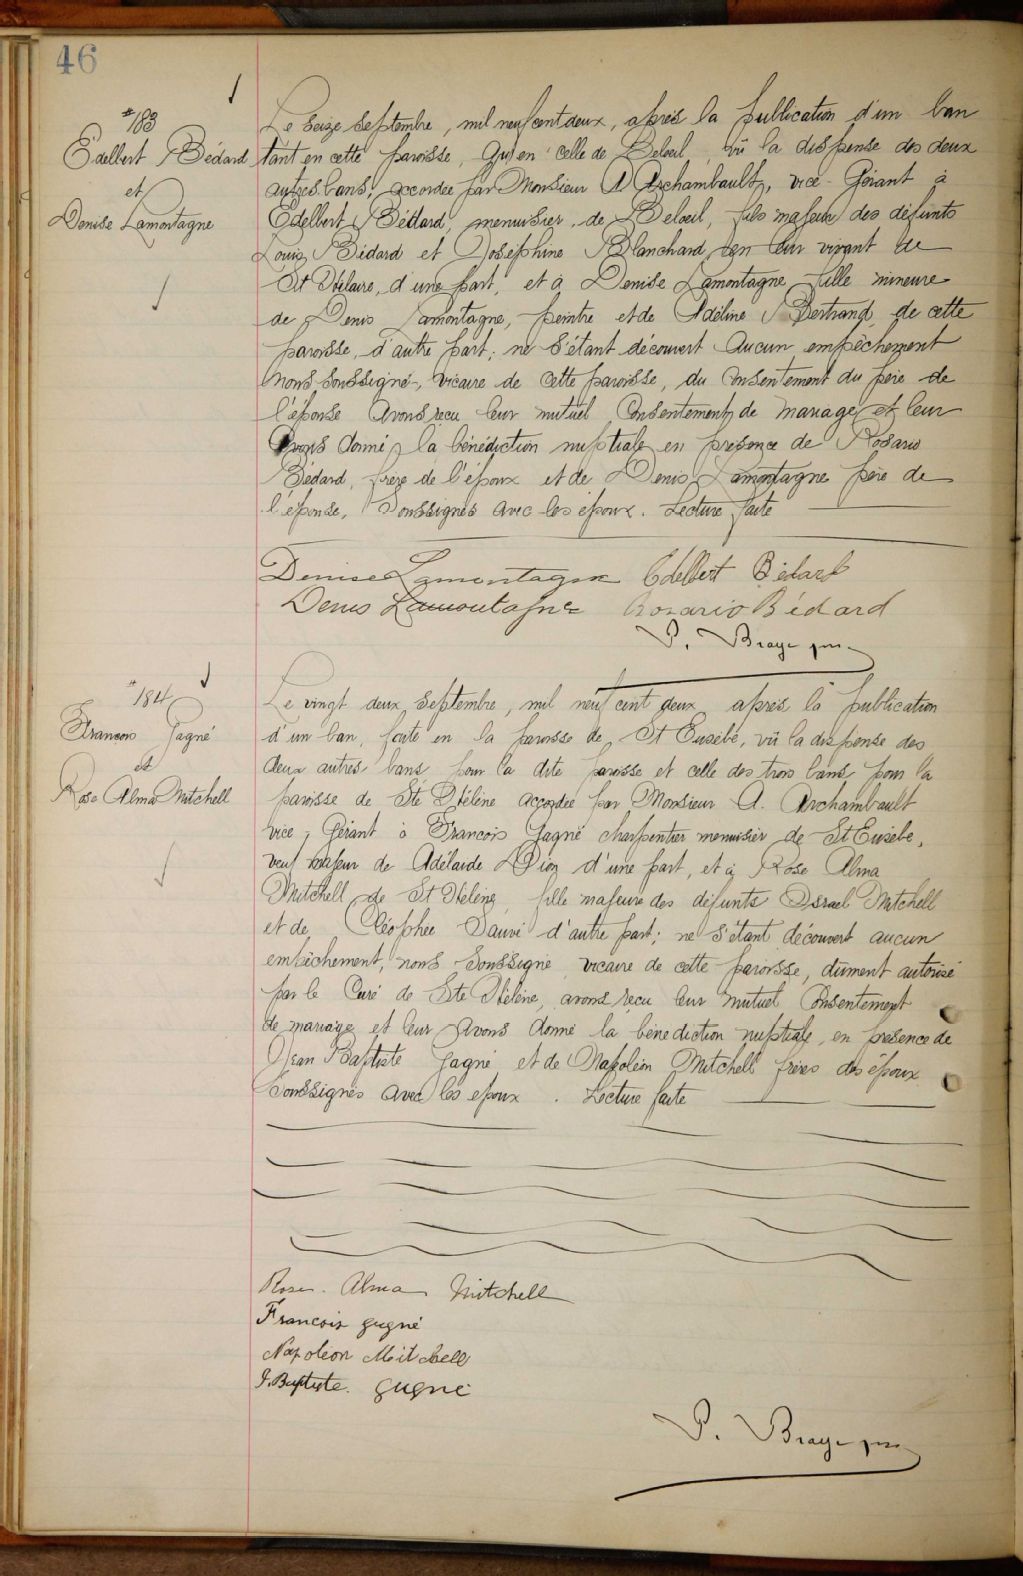 46
#183
Edelbert Bédard
et
Denise Lamontagne
Le seize septembre, mil neuf cent deux, après la publication d'un ban
tant en cette paroisse, qu'en celle de Beloeil, vû la dispense des deux
autres bans, accordée par Monsieur A Archambault, vice-Gérant à
Edelbert Bédard, menuisier, de Beloeil, fils majeur des défunts
Louis Bédard et Joséphine Blanchard, en leur vivant de
St Hilaire, d'une part, et à Denise Lamontagne fille mineure
de Denis Lamontagne, peintre et de Adéline Bertrand, de cette
paroisse, d'autre part; ne s'étant découvert aucun empêchement
nous soussigné, vicaire de cette paroisse, du consentement du père de
l'épouse avons reçu leur mutuel consentement de mariage et leur
avons donné la bénédiction nuptiale en présence de Rosario
Bédard, frère de l'époux et de Denis Lamontagne père de
l'épouse, soussignés avec les époux. Lecture faite
Denise Lamontagne Edelbert Bédard
Denis Lamontagne Rosario Bédard
P. Braye ptre
#184
Francois Gagné
et
Rose Alma Mitchell
Le vingt deux septembre, mil neuf cent deux après la publication
d'un ban, faite en la paroisse de St Eusèbe, vû la dispense des
deux autres bans pour la dite paroisse et celle des trois bans pour la
paroisse de Ste Hélène accordée par Monsieur A. Archambault
vice-Gérant à François Gagné charpentier menuisier de St Eusèbe,
veuf majeur de Adélaïde Dion d'une part, et à Rose Alma
Mitchell de St Hélène, fille majeure des défunts Israel Mitchell
et de Cléophée Sauvé d'autre part; ne s'étant découvert aucun
empêchement, nous soussigné vicaire de cette paroisse, dûment autorisé
par le Curé de Ste Hélène, avons reçu leur mutuel consentement
de mariage et leur avons donné la bénédiction nuptiale, en présence de
Jean Baptiste Gagné et de Napoléon Mitchell frères des époux
soussignés avec les époux. Lecture faite
Rose. Alma Mitchell
Francois gagné
Napoléon Mitchell
J. Baptiste. gagné
P. Braye ptre